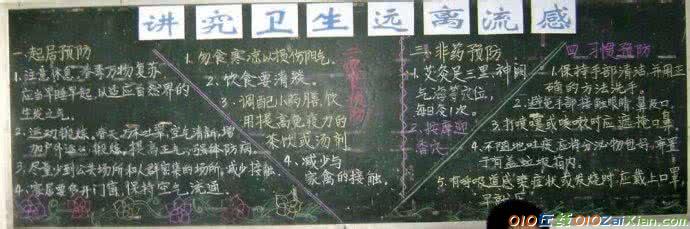 讲究卫生远离流感
一.起居预防
1.注意休息,春季万物复苏
应当早睡早起,以适应自然界的
生发之气。
2.运动锻炼,春天万木吐翠,空气清新,增
加户外运动锻炼,提高正气,强体防病。
3.尽量少到公共场所和人群密集的场所,减少接触。
4.家居要多开门窗,保持空气流通。
二.饮食预防
1.勿食寒凉以损伤阳气.
2.饮食要清淡
3.调配小药膳,饮
用提高免疫力的
茶饮或汤剂
4.减少与
家禽的接触.
三.非药预防
1.艾灸足三里.神阙
气海等穴位,
每日灸1次。
2.按摩迎
香穴.
四.习惯预防
1.保持手部清洁,并用正
确的方法洗手。
2.避免手部接触眼睛.鼻及口.
3.打喷嚏或咳嗽时应遮掩口鼻。
4.不随地吐痰,应将分泌物包好,弃置
于有盖垃圾箱内。
5.有呼吸道感染症状或发烧时,应戴上口罩,
010在线010ZaiXian.com